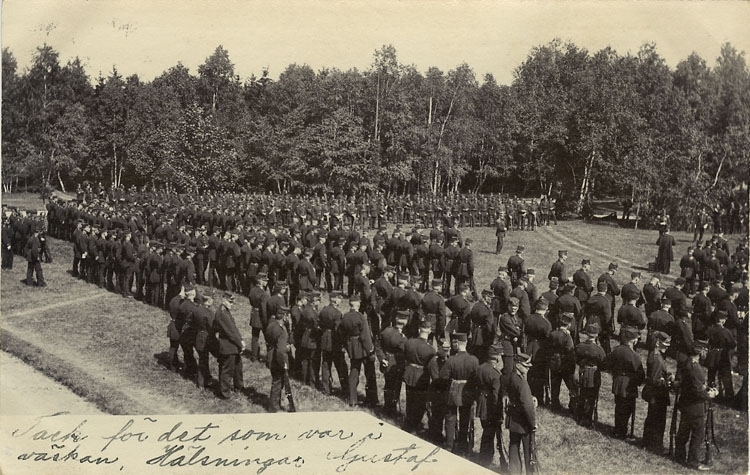 Tack för det som var i
väskan, Hälsningar Gustaf